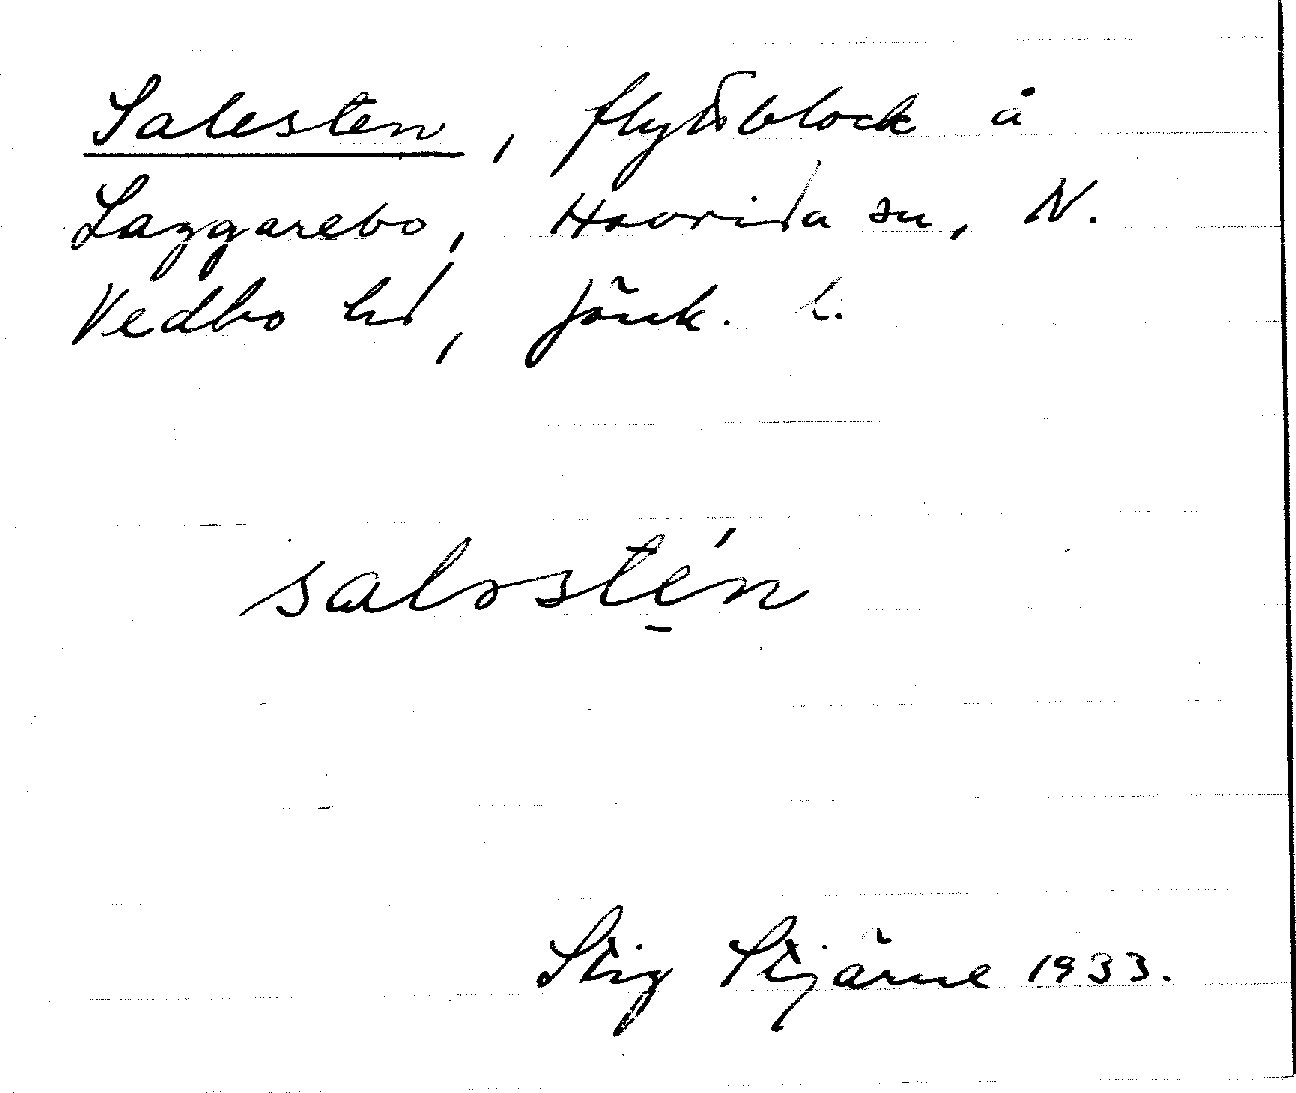 Salesten, flyttblock å
Laggarebo, Haurida sn, N.
Vedbo hd, Jönk. l.
salɷstén
Stig Stjärne 1933.